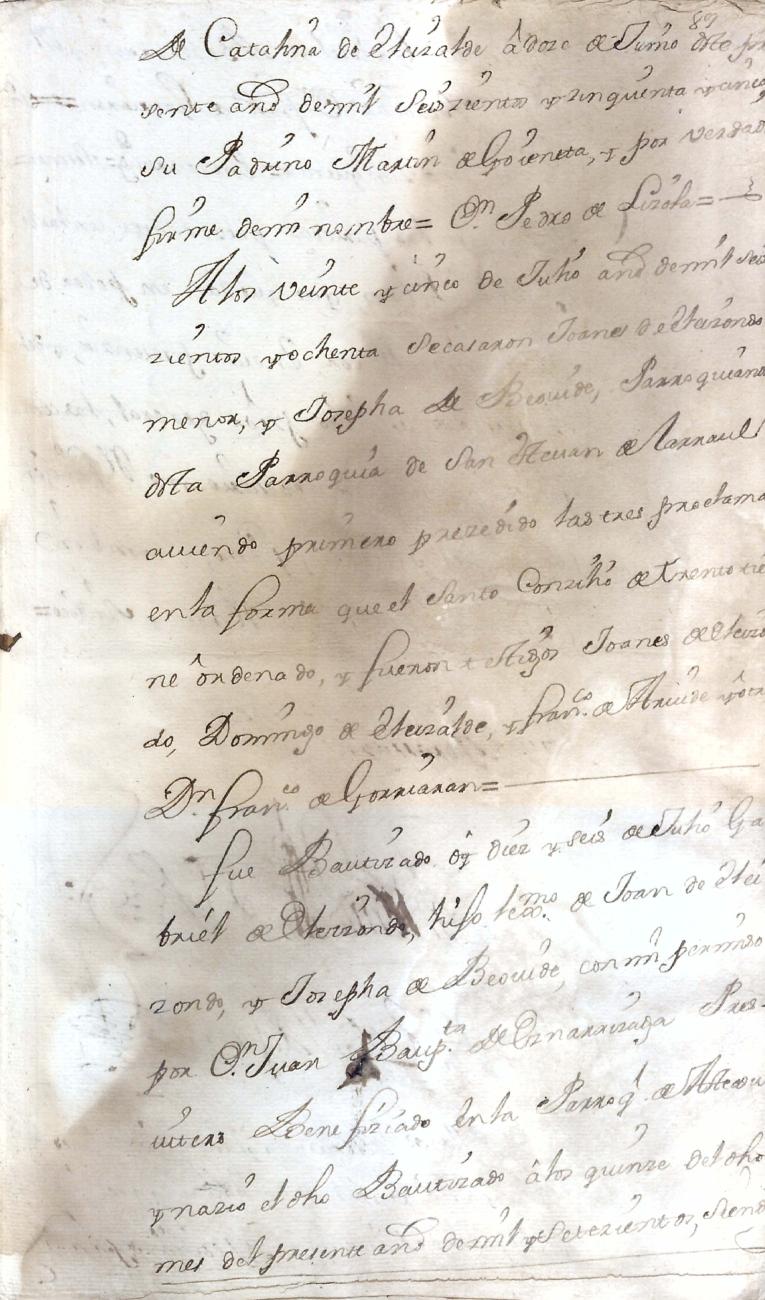 89
de Catalina de Eleizalde â doze de Junio deste pre
sente año de mil seiszientos y zinquenta y cinco
su Padrino Martin de Goieneta, y por verdad
firme de mi nombre= Dn Pedro de Lizola=
A los veinte y cinco de Julio año de mil seis
zientos y ochenta se casaron Joanes de Eleizondo
menor, y Josepha de Beovide, Parroquiana
dsta Parroquia de San Stevan de Larraul
aviendo primero prezedido las tres proclama
en la forma que el Santo Conzilio de Trento tie
ne ôrdenado, y fueron testigos Joanes de Eleizo
do, Domingo de Eleizalde, y franco. de Atriude y ôtr
Dn franco. de Gorriaran=
fue Bautizado ôy diez y seis de Julio Ga
briel de Eleizondo, hijo lexmo. de Joan de Elei
zondo, y Josepha de Beovide, con mi permiso
por Dn Juan Baupta. de Ernarrizaga Pres-
vitero Benefiziado en la Parroql. de Asteasu
y nazio el dho Bautizado â los quinze del dho
mes del presente año de mil y setezientos, siend